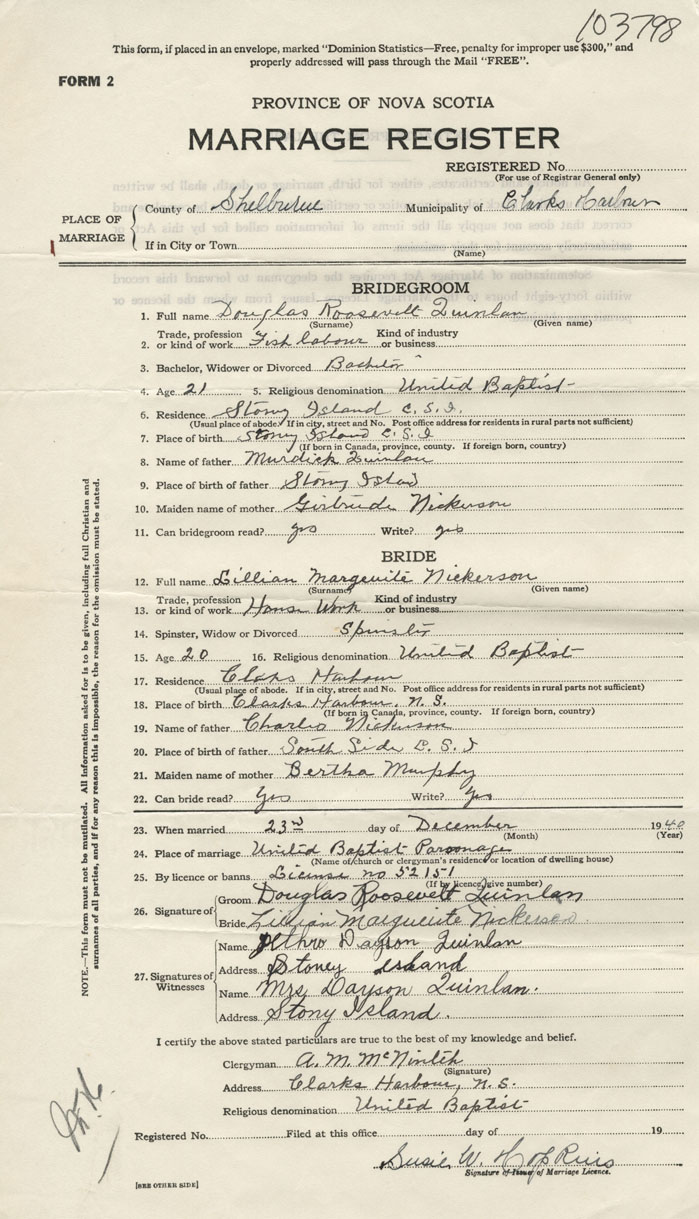 103798
This form, if placed in an envelope, marked "Dominion Statistics—Free, penalty for improper use $300," and
properly addressed will pass through the Mail "FREE".
FORM 2
PROVINCE OF NOVA SCOTIA
MARRIAGE REGISTER
REGISTERED No.
(For use of Registrar General only)
PLACE OF MARRIAGE
County of Shelburne Municipality of Clarks Harbour
If in City or Town
(Name)
BRIDEGROOM
1. Full name Douglas Roosevelt Quinlan
(Surname) (Given name)
2. Trade, profession or kind of work Fish labour Kind of industry or business
3. Bachelor, Widower or Divorced Bachelor
4. Age 21 5. Religious denomination United Baptist
6. Residence Stony Island C. S. I.
(Usual place of abode. If in city, street and No. Post office address for residents in rural parts not sufficient)
7. Place of birth Stony Island C. S. I
(If born in Canada, province, county. If foreign born, country)
8. Name of father Murdick Quinlan
9. Place of birth of father Stony Island
10. Maiden name of mother Girtrude Nickerson
11. Can bridegroom read? yes Write? yes
BRIDE
12. Full name Lillian Marguerite Nickerson
(Surname) (Given name)
13. Trade, profession or kind of work House Work Kind of industry or business
14. Spinster, Widow or Divorced Spinster
15. Age 20 16. Religious denomination United Baptist
17. Residence Clarks Harbour
(Usual place of abode. If in city, street and No. Post office address for residents in rural parts not sufficient)
18. Place of birth Clarks Harbour, N. S.
(If born in Canada, province, county. If foreign born, country)
19. Name of father Charles Nickerson
20. Place of birth of father South Side C. S. I
21. Maiden name of mother Bertha Murphy
22. Can bride read? Yes Write? Yes
23. When married 23rd day of December 1940
(Month) (Year)
24. Place of marriage United Baptist Parsonage
(Name of church or clergyman's residence or location of dwelling house)
25. By licence or banns License no 52151
(If by licence, give number)
26. Signature of Groom Douglas Roosevelt Quinlan
Bride Lillian Marguerite Nickerson
27. Signatures of Witnesses
Name Jethro Dayson Quinlan
Address Stoney Island
Name Mrs Dayson Quinlan.
Address Stony Island.
I certify the above stated particulars are true to the best of my knowledge and belief.
Clergyman A. M. McNintch
(Signature)
Address Clarks Harbour, N. S.
Religious denomination United Baptist
Registered No. Filed at this office day of 19
Susie W. Hopkins
Signature of Issuer of Marriage Licence.
[SEE OTHER SIDE]
NOTE.—This form must not be mutilated. All information asked for is to be given, including full Christian and
surnames of all parties, and if for any reason this is impossible, the reason for the omission must be stated.